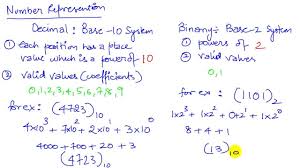 Number Representation
Decimal: Base-10 System
① each position has a place
value which is a power of 10
② valid values (coefficients)
0,1,2,3,4,5,6,7,8,9
for ex: (4723)₁₀
4x10³ + 7x10² + 2x10 + 3x10⁰
4000 + 700 + 20 + 3
(4723)₁₀
Binary: Base-2 System
① powers of 2
② valid values
0,1
for ex: (1101)₂
1x2³ + 1x2² + 0x2¹ + 1x2⁰
8 + 4 + 1
(13)₁₀